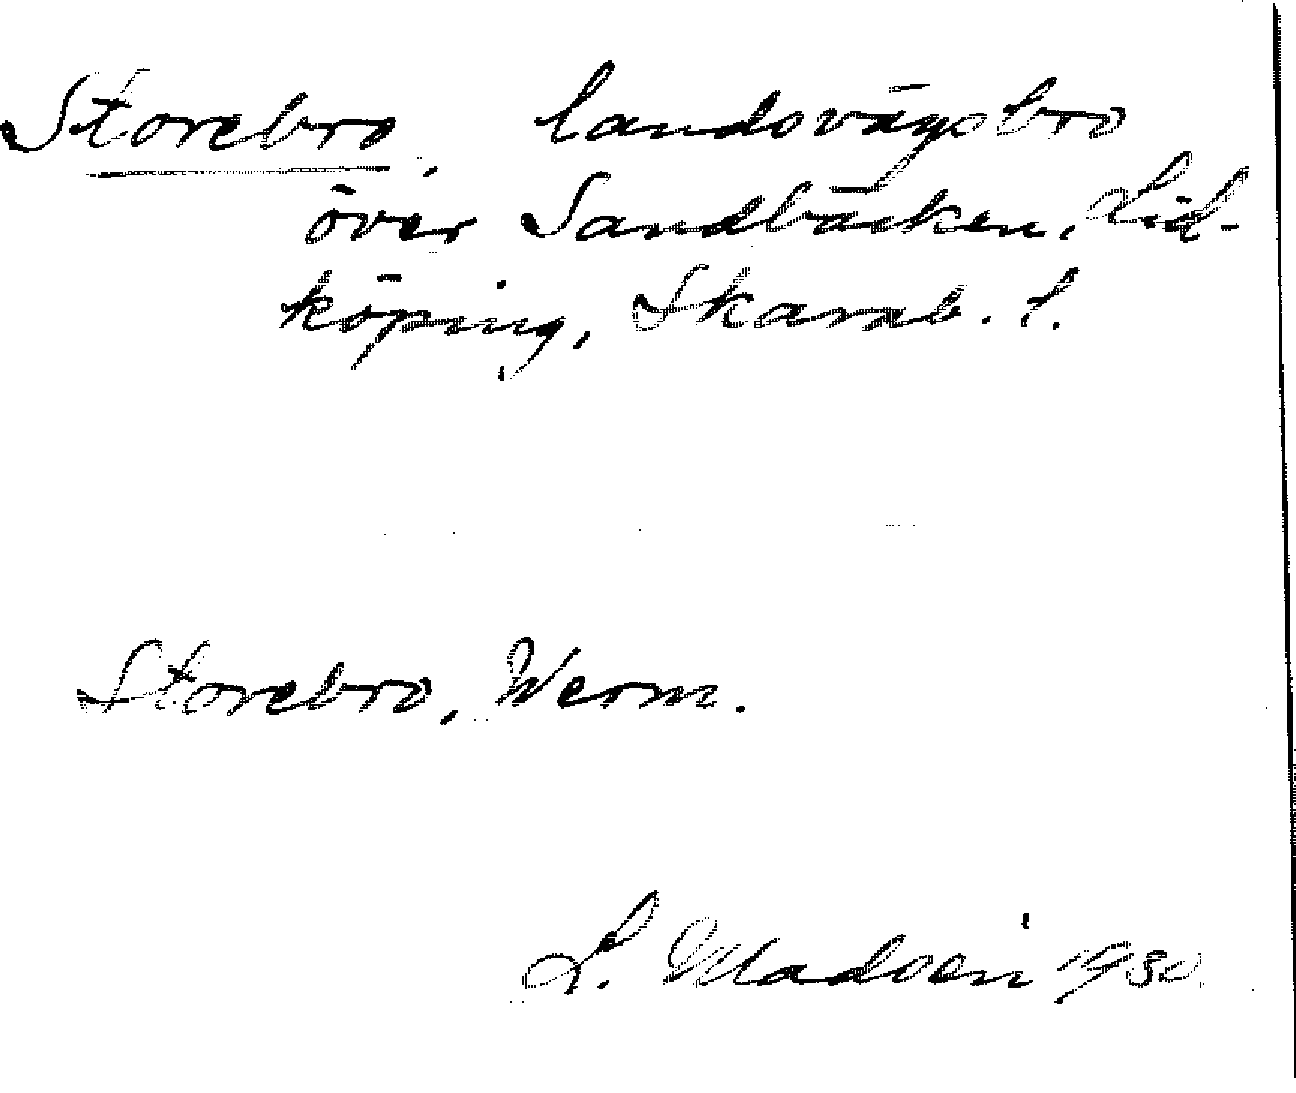 Storebro, landsvägsbro
över Sandbäcken, Lid-
köping, Skarab. l.
Storebro, Werm.
L. Madsén 1930